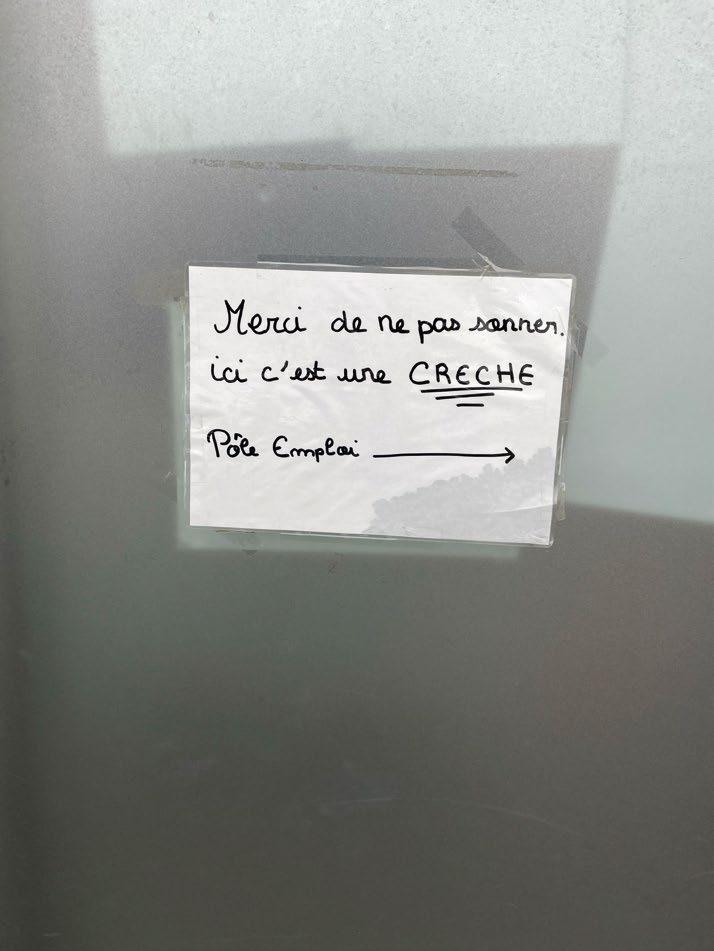 Merci de ne pas sonner.
ici c'est une CRECHE
Pôle Emploi →